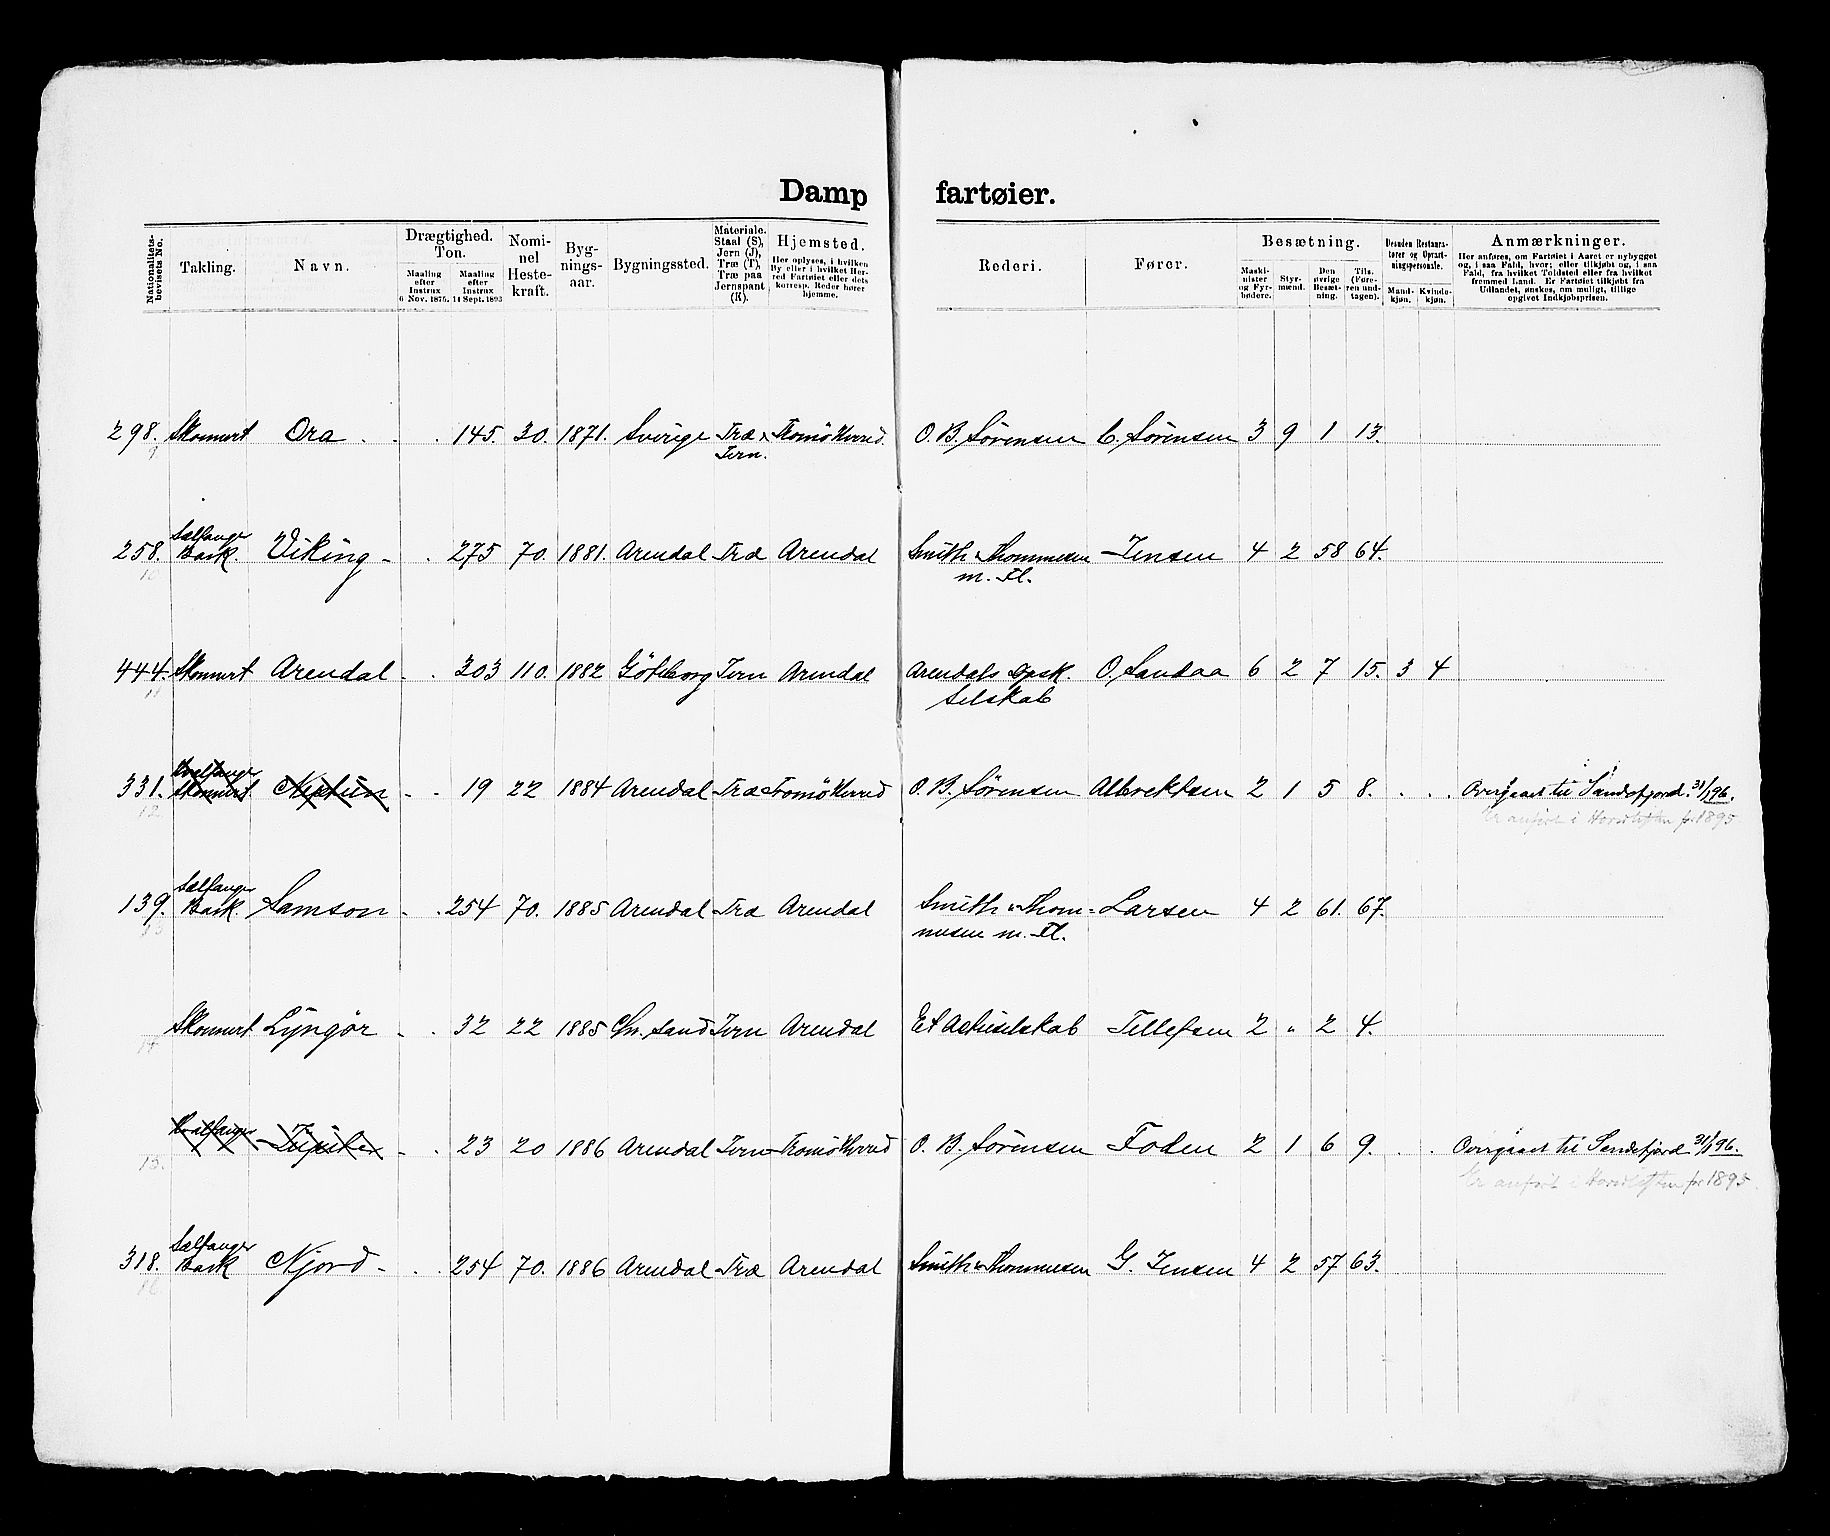 Dampfartøier.
Nationalitetsbevisets No. Takling. Navn. Drægtighed. Ton. Maaling efter Instrux 6 Nov. 1875. Maaling efter Instrux 14 Sept. 1893 Nominel Hestekraft. Bygningsaar. Bygningssted. Materiale. Staal (S), Jern (J), Træ (T), Træ paa Jernspant (K). Hjemsted. Her oplyses, i hvilken By eller i hvilket Herred Fartøiet eller dets korresp. Reder hører hjemme. Rederi. Fører. Besætning. Maskinister og Fyrbødere. Styrmænd. Den øvrige Besætning. Tils. (Føreren undtagen). Desuden Restauratører og Opvartningspersonale. Mandkjøn. Kvindekjøn. Anmærkninger. Her anføres, om Fartøiet i Aaret er nybygget og, i saa Fald, hvor; eller tilkjøbt og, i saa Fald, fra hvilket Toldsted eller fra hvilket fremmed Land. Er Fartøiet tilkjøbt fra Udlandet, ønskes, om muligt, tillige opgivet Indkjøbsprisen.
298. Skonnert Ora 145. 30. 1871. Sverige Træ & Tromö Herred. O. B. Sørensen C. Sørensen 3 9 1 13.
9 Jern.
Sælfanger
258. Bark. Viking 275 70. 1881. Arendal Træ Arendal Smith & Thommesen Jensen 4 2 58 64.
10 m. Fl.
444. Skonnert Arendal 303 110. 1882 Göteborg Jern Arendal Arendals Dpsk. O. Sandaa 6 2 7 15. 3 4
11 Selskab
Hvalfanger
331. Skonnert Neptun 19 22 1884 Arendal Træ Tromö Herred O. B. Sørensen Albrektsen 2 1 5 8. Overgaaet til Sandefjord. 31/1 96.
12 Er anført i Hovedlisten for 1895
Sælfanger
139. Bark. Samson 254 70. 1885 Arendal Træ Arendal Smith & Thom- Larsen 4 2 61. 67.
13 mesen m. Fl.
Skonnert Lyngør 32 22 1885 Chr. sand Jern Arendal Et Actieselskab Tellefsen 2 " 2 4.
14
Hvalfanger Jupiter 23 20 1886 Arendal Jern Tromö Herred O. B. Sørensen Foden 2 1 6 9. Overgaaet til Sandefjord 31/1 96.
15. Er anført i Hovedlisten for 1895.
Sælfanger
318. Bark Njord 254 70. 1886 Arendal Træ Arendal Smith & Thommesen G. Jensen 4 2 57 63.
16